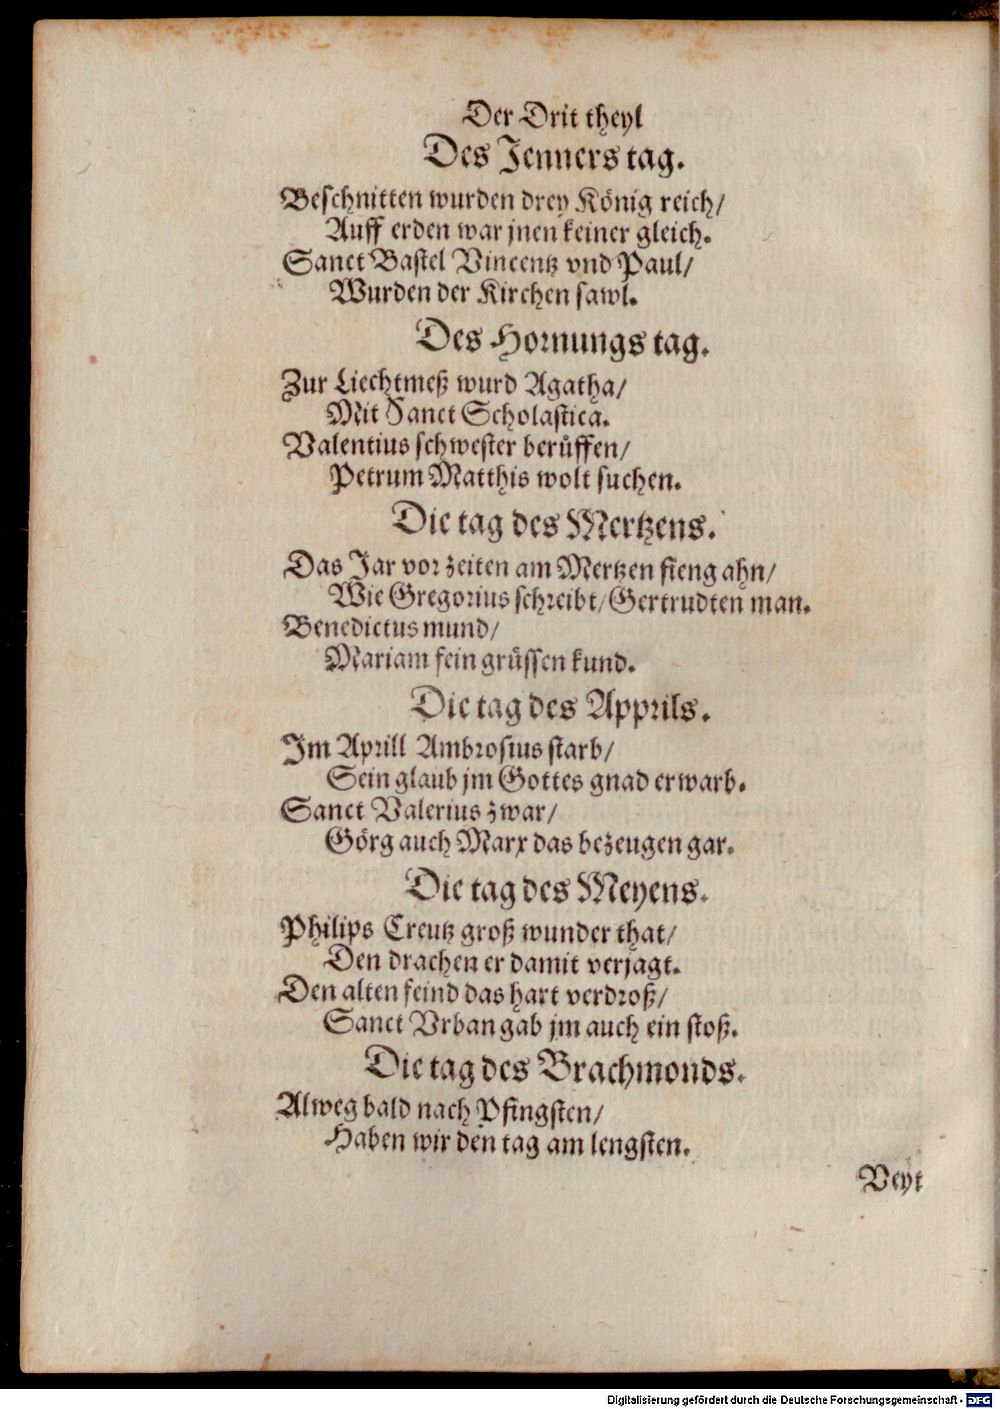 Der Drit theyl
Des Jenners tag.
Beschnitten wurden drey König reich/
Auff erden war jnen keiner gleich.
Sanct Bastel Vincentz vnd Paul/
Wurden der Kirchen sawl.
Des Hornungs tag.
Zur Liechtmeß wurd Agatha/
Mit Sanct Scholastica.
Valentius schwester berüffen/
Petrum Matthis wolt suchen.
Die tag des Mertzens.
Das Jar vor zeiten am Mertzen fieng ahn/
Wie Gregorius schreibt/ Gertrudten man.
Benedictus mund/
Mariam fein grüssen kund.
Die tag des Apprils.
Im Aprill Ambrosius starb/
Sein glaub jm Gottes gnad erwarb.
Sanct Valerius zwar/
Görg auch Marx das bezeugen gar.
Die tag des Meyens.
Philips Creutz groß wunder that/
Den drachen er damit verjagt.
Den alten feind das hart verdroß/
Sanct Vrban gab jm auch ein stoß.
Die tag des Brachmonds.
Alweg bald nach Pfingsten/
Haben wir den tag am lengsten.
Veyt
Digitalisierung gefördert durch die Deutsche Forschungsgemeinschaft - DFG